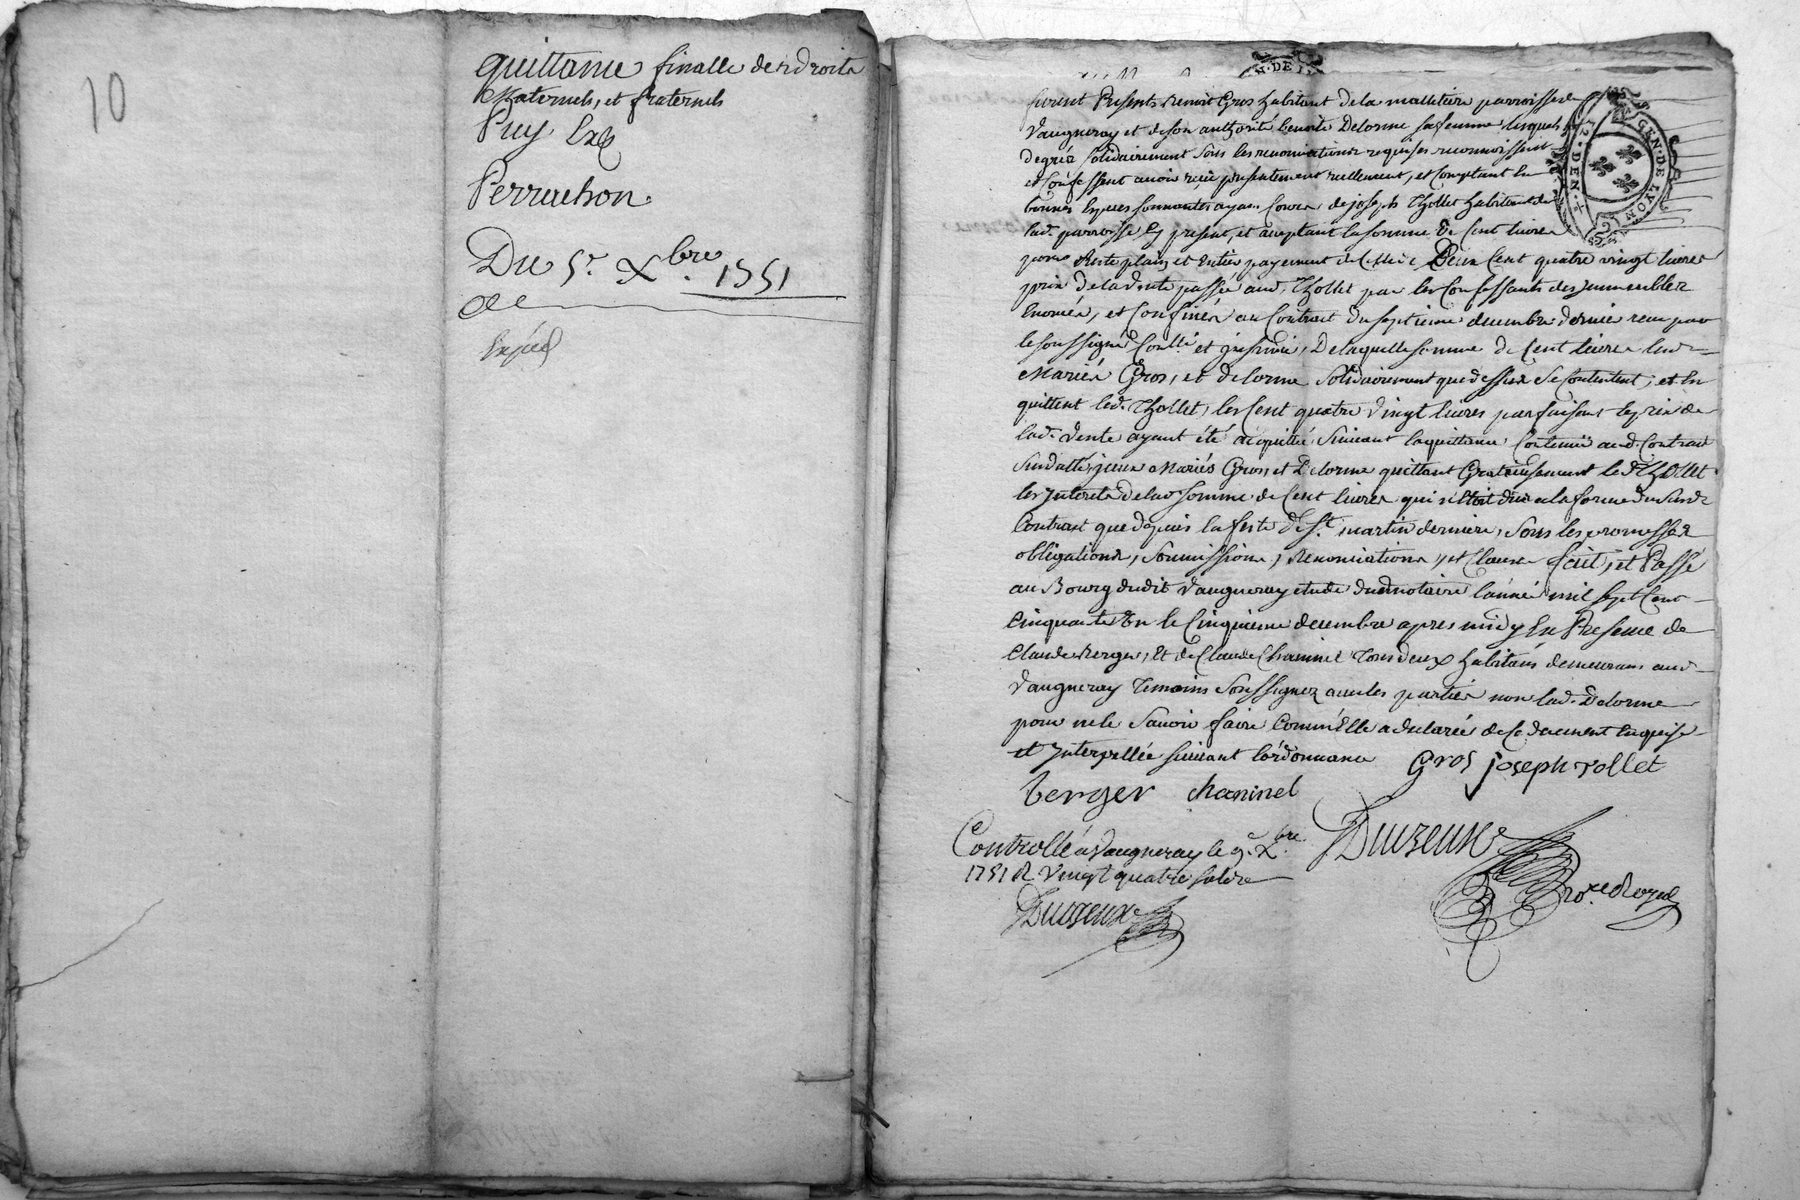 10
quittance finalle de droits
Maternels, et fraternels
Puy
Perrachon
Du 5e Xbre 1751
Expéd
GEN. DE LYON
2. DEN.
furent Presents Benoit Gros habitant de la malletiere parroisse de
Vaugneray et de son authorité benoite Delorme sa femme lesquels
degréz solidairement sous les renonciations requises reconnoissent
et Confessent avoir reçu presentement reellement, et Comptant En
bonnes Especes sonnantes ayan. Cours de joseph Thollet habitant de
lad. parroisse Ey present, et aceptant la somme de Cent livres
pour Reste plain et Entier payement de Celle de Deux Cent quatre vingt livres
prix de la vente passée aud. Thollet par les Confessants des immeubles
Enoncés, et Confinés au Contrat du septieme decembre dernier recu par
le soussigné Conlle. et insinué, De laquelle somme de Cent livres lesd.
Mariés Gros, et delorme solidairement que dessus se Contentent, et En
quittent led. Thollet, les Cent quatre vingt livres parfaisant le prix de
lad. vente ayant été acquitté suivant la quittance Contenue aud. Contrat
susdatté, iceux Mariés Gros, et Delorme quittant Gratieusement led. Thollet
les Interets de lad. somme de Cent livres qui n'Etoit due a la forme du susd.
Contrat que depuis la feste de St. martin derniere, sous les promesses
obligations, soumissions, Renonciations, et Clauses fait, et Passé
au Bourg dudit Vaugneray etude dud. notaire l'année mil sept Cent
Cinquante Un le Cinquieme decembre apres midy En Presence de
Claude Berger, Et de Claude Chaninel Tous deux habitans demeurans aud.
Vaugneray Temoins soussignez avec les parties non lad. Delorme
pour ne le savoir faire Comm'Elle a declarée de Ce duement Enquise
et Interpellée suivant l'ordonnance Gros joseph tollet
berger chaninel
Controllé a Vaugneray le 9e Xbre
1751 R. Vingt quatre sols
Duvzeux
Nore. Royal